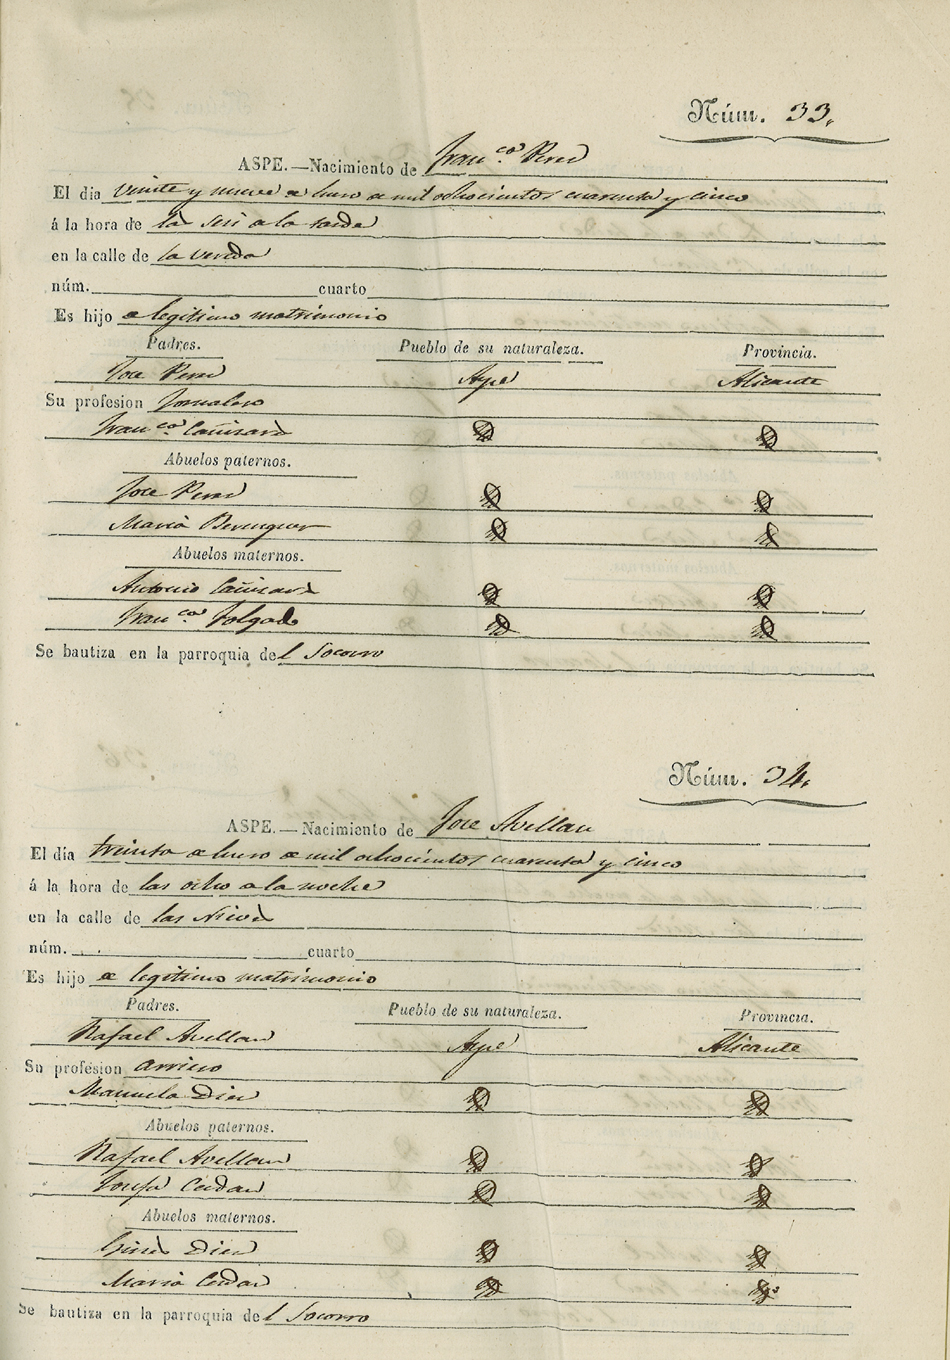 Núm. 33.
ASPE.—Nacimiento de Franca Perez
El dia veinte y nueve de Enero de mil ochocientos cuarenta y cinco
á la hora de las seis de la tarde
en la calle de la Vereda
núm. cuarto
Es hijo de legitimo matrimonio
Padres. Pueblo de su naturaleza. Provincia.
Jose Perez Aspe Alicante
Su profesion Jornalero
Franca Cañizares
Abuelos paternos.
Jose Perez
Maria Berenguer
Abuelos maternos.
Antonio Cañizares
Franca Folgado
Se bautiza en la parroquia del Socorro
Núm. 34.
ASPE.—Nacimiento de Jose Avellan
El dia treinta de Enero de mil ochocientos cuarenta y cinco
á la hora de las ocho de la noche
en la calle de las Nieves
núm. cuarto
Es hijo de legitimo matrimonio
Padres. Pueblo de su naturaleza. Provincia.
Rafael Avellan Aspe Alicante
Su profesion arriero
Manuela Diez
Abuelos paternos.
Rafael Avellan
Josefa Cerdan
Abuelos maternos.
Ginés Diez
Maria Cerdan
Se bautiza en la parroquia del Socorro